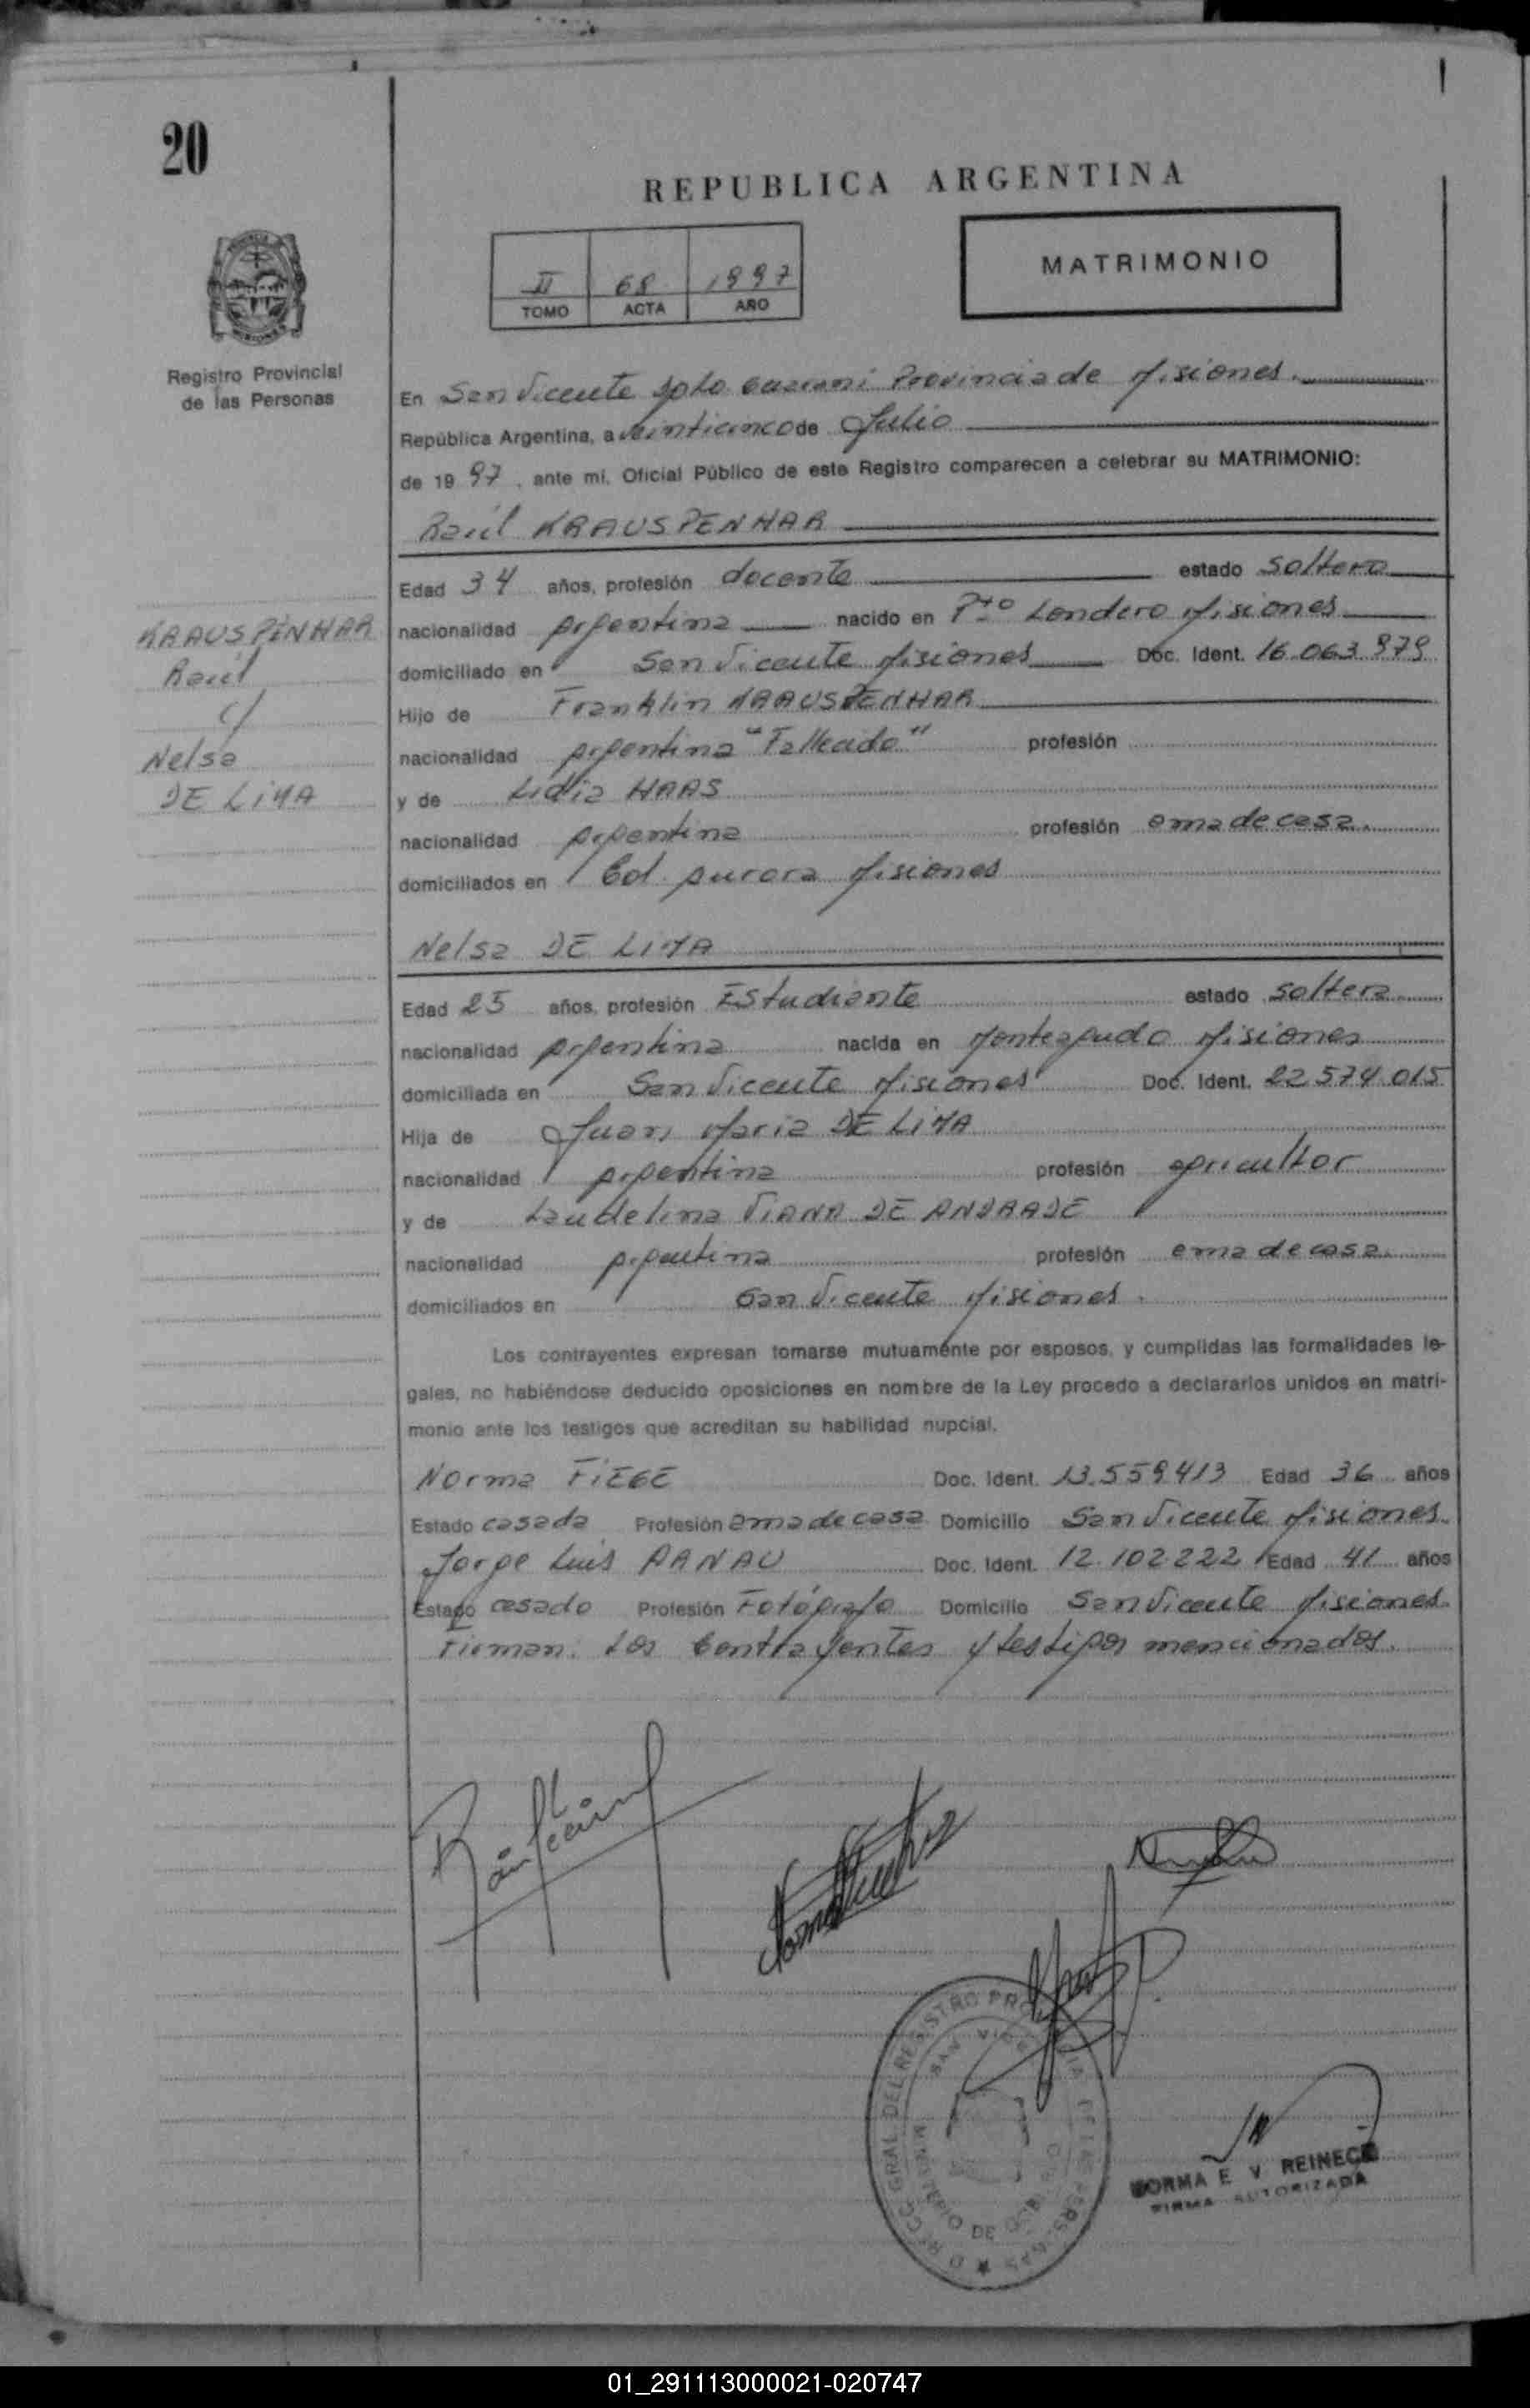 20
REPUBLICA ARGENTINA
II 68 1997
TOMO ACTA AÑO
MATRIMONIO
Registro Provincial
de las Personas
En San Vicente Dpto. Guaraní Provincia de Misiones.
República Argentina, a veinticinco de Julio
de 1997, ante mí, Oficial Público de este Registro comparecen a celebrar su MATRIMONIO:
Raúl KRAUSPENHAR
Edad 34 años, profesión docente estado soltero
nacionalidad Argentina nacido en Pto Londero Misiones
domiciliado en San Vicente Misiones Doc. Ident. 16.063.979
Hijo de Franklin KRAUSPENHAR
nacionalidad Argentina "Fallecido" profesión
y de Lidia HAAS
nacionalidad Argentina profesión ama de casa.
domiciliados en Col. Aurora Misiones
KRAUSPENHAR
Raúl
c/
Nelsa
DE LIMA
Nelsa DE LIMA
Edad 25 años, profesión Estudiante estado soltera
nacionalidad Argentina nacida en Monteagudo Misiones
domiciliada en San Vicente Misiones Doc. Ident. 22.574.015
Hija de Juan Maria DE LIMA
nacionalidad Argentina profesión agricultor
y de Laudelina VIANA DE ANDRADE
nacionalidad Argentina profesión ama de casa.
domiciliados en San Vicente Misiones.
Los contrayentes expresan tomarse mutuamente por esposos, y cumplidas las formalidades le-
gales, no habiéndose deducido oposiciones en nombre de la Ley procedo a declararlos unidos en matri-
monio ante los testigos que acreditan su habilidad nupcial.
Norma FIEGE Doc. Ident. 13.559.413 Edad 36 años
Estado casada Profesión ama de casa Domicilio San Vicente Misiones.
Jorge Luis PANAU Doc. Ident. 12.102.222 Edad 41 años
Estado casado Profesión Fotógrafo Domicilio San Vicente Misiones.
Firman: Los Contrayentes y testigos mencionados.
GRAL DEL REGISTRO
SAN
DE
NORMA E. V. REINECK
FIRMA AUTORIZADA
01_291113000021-020747